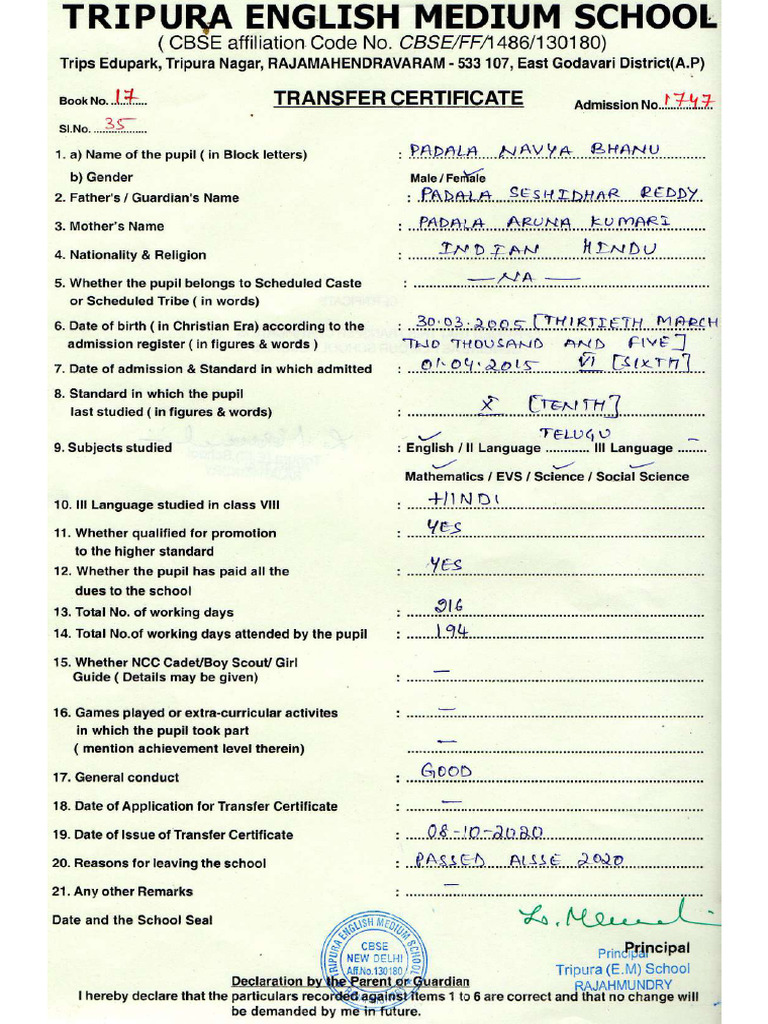 TRIPURA ENGLISH MEDIUM SCHOOL
( CBSE affiliation Code No. CBSE/FF/1486/130180)
Trips Edupark, Tripura Nagar, RAJAMAHENDRAVARAM - 533 107, East Godavari District(A.P)
Book No. 17
TRANSFER CERTIFICATE
Admission No. 1747
Sl.No. 35
1. a) Name of the pupil ( in Block letters) : PADALA NAVYA BHANU
b) Gender Male / Female
2. Father's / Guardian's Name : PADALA SESHIDHAR REDDY
3. Mother's Name : PADALA ARUNA KUMARI
4. Nationality & Religion : INDIAN HINDU
5. Whether the pupil belongs to Scheduled Caste : — NA —
or Scheduled Tribe ( in words)
6. Date of birth ( in Christian Era) according to the : 30.03.2005 [THIRTIETH MARCH
admission register ( in figures & words ) TWO THOUSAND AND FIVE]
7. Date of admission & Standard in which admitted : 01.04.2015 VI [SIXTH]
8. Standard in which the pupil
last studied ( in figures & words) : X [TENTH]
TELUGU
9. Subjects studied : English / II Language ............ III Language ........
Mathematics / EVS / Science / Social Science
10. III Language studied in class VIII : HINDI
11. Whether qualified for promotion : YES
to the higher standard
12. Whether the pupil has paid all the : YES
dues to the school
13. Total No. of working days : 216
14. Total No.of working days attended by the pupil : 194
15. Whether NCC Cadet/Boy Scout/ Girl
Guide ( Details may be given) : —
16. Games played or extra-curricular activites : —
in which the pupil took part
( mention achievement level therein) —
17. General conduct : GOOD
18. Date of Application for Transfer Certificate : —
19. Date of Issue of Transfer Certificate : 08-10-2020
20. Reasons for leaving the school : PASSED AISSE 2020
21. Any other Remarks : —
Date and the School Seal
TRIPURA ENGLISH MEDIUM SCHOOL
CBSE
NEW DELHI
Aff.No.130180
Principal
Principal
Tripura (E.M) School
RAJAHMUNDRY
Declaration by the Parent or Guardian
I hereby declare that the particulars recorded against items 1 to 6 are correct and that no change will
be demanded by me in future.